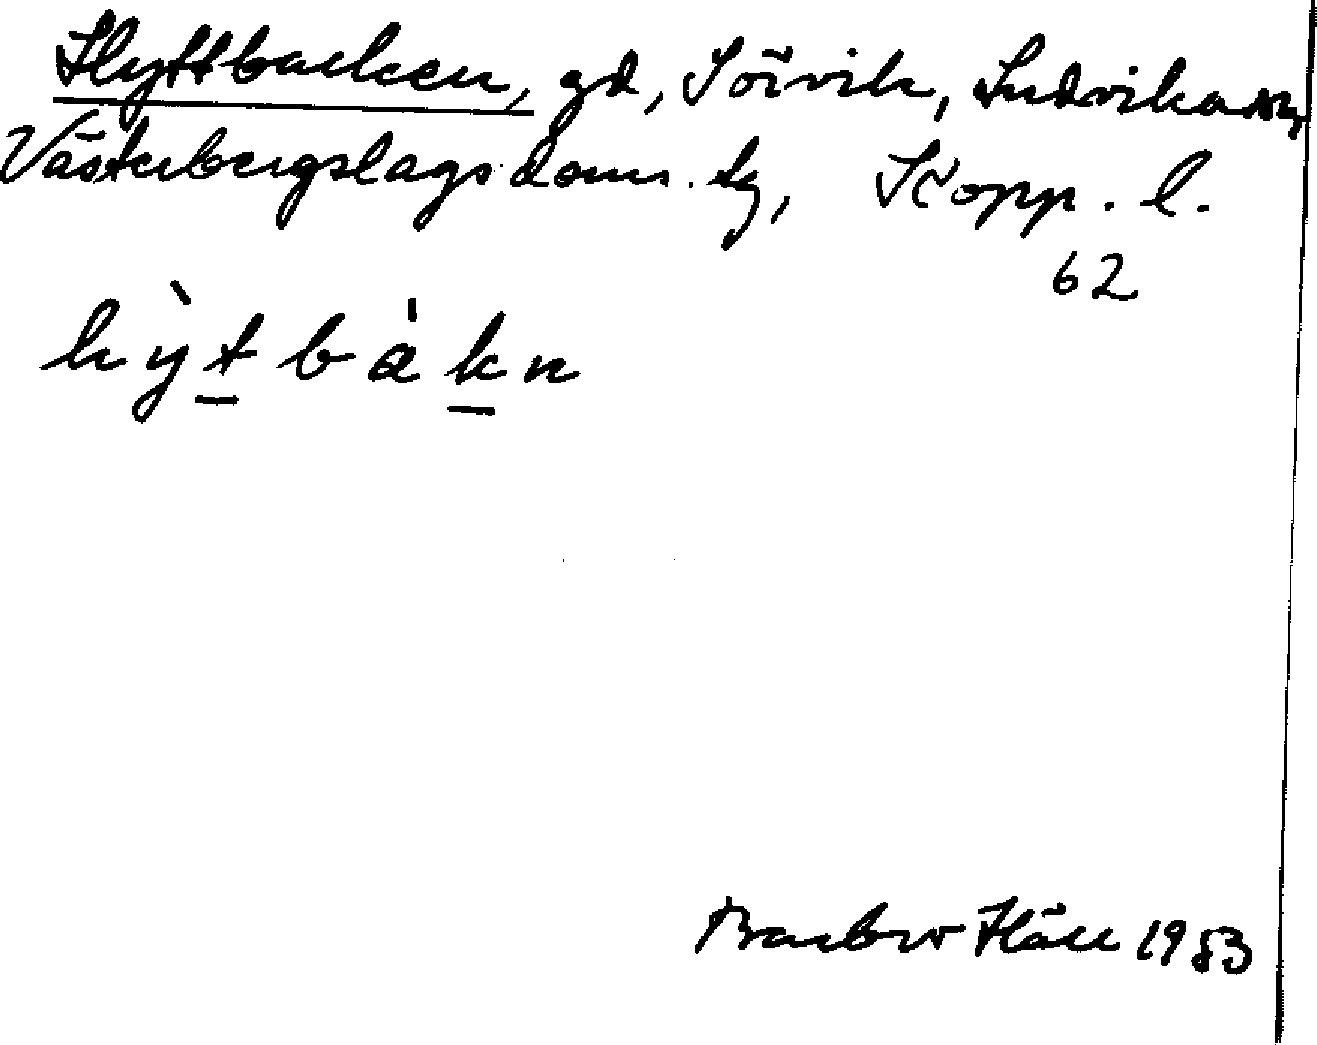 Hyttbacken, gd, Sörvik, Ludvika sn,
Västerbergslags doms. tg, Kopp. l.
62
hỳt̲bàk̲n
1983